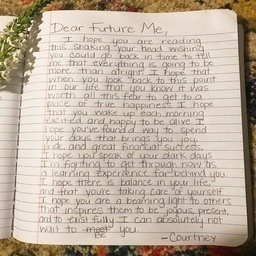 Dear Future Me,
I hope you are reading
this shaking your head wishing
you could go back in time to tell
me that everything is going to be
more than alright. I hope that
when you look back to this point
in our life that you know it was
worth all this fear to get to a
place of true happiness. I hope
that you wake up each morning
excited and happy to be alive. I
hope you've found a way to spend
your days that brings you joy,
pride, and great financial success.
I hope you speak of your dark days
I'm fighting to get through now as
a learning experience far behind you.
I hope there is balance in your life,
and that you're taking care of yourself.
I hope you are a beaming light to others
that inspires them to be joyous, present,
and to exist fully. I can absolutely not
wait to meet you.
Be
-Courtney